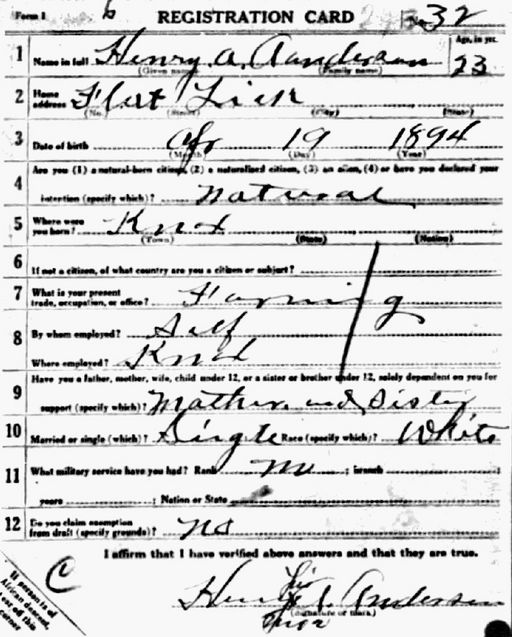 Form 1 6 REGISTRATION CARD No. 32
1 Name in full Henry A. Aandersen Age, in yrs.
(Given name) (Family name) 23
2 Home address Flat Lick
(No.) (Street) (City) (State)
3 Date of birth Apr 19 1894
(Month) (Day) (Year)
4 Are you (1) a natural-born citizen, (2) a naturalized citizen, (3) an alien, (4) or have you declared your
intention (specify which)? natural
5 Where were you born? Knox
(Town) (State) (Nation)
6 If not a citizen, of what country are you a citizen or subject?
7 What is your present trade, occupation, or office? Farming
8 By whom employed? Self
Where employed? Knox
9 Have you a father, mother, wife, child under 12, or a sister or brother under 12, solely dependent on you for
support (specify which)? Mother and Sister
10 Married or single (which)? Single Race (specify which)? White
11 What military service have you had? Rank no ; branch ;
years ; Nation or State
12 Do you claim exemption from draft (specify grounds)? No
I affirm that I have verified above answers and that they are true.
C
his
Henry A. Anderson
(Signature or mark)
If person is of
African descent,
tear off this
corner